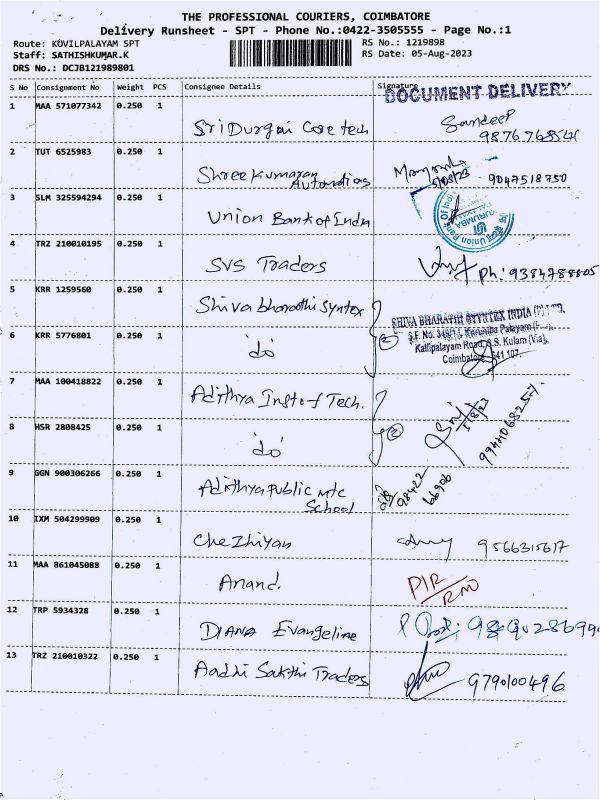 THE PROFESSIONAL COURIERS, COIMBATORE
Delivery Runsheet - SPT - Phone No.:0422-3505555 - Page No.:1
Route: KOVILPALAYAM SPT
RS No.: 1219898
Staff: SATHISHKUMAR.K
RS Date: 05-Aug-2023
DRS No.: DCJB121989801
S No Consignment No Weight PCS Consignee Details Signature
DOCUMENT DELIVERY
1 MAA 571077342 0.250 1 Sri Durgai Coretech Sandeep
2 TUT 6525983 0.250 1 Shree Kumaran
Automations
5/08/23 9047518750
3 SLM 325594294 0.250 1 Union Bank of India
4 TRZ 210010195 0.250 1 SVS Traders Ph: 9384788805
5 KRR 1259560 0.250 1 Shiva bharathi Syntex
SHIVA BHARATHI SYNTEX INDIA (P) LTD.
6 KRR 5776801 0.250 1 'do' 2
Kallipalayam Road, S.S. Kulam (Via),
Coimbatore 641 107.
7 MAA 100418822 0.250 1 Adithya Inst of Tech.
5/8/23
8 HSR 2808425 0.250 1 'do' 2
9 GGN 900306266 0.250 1 Adithya Public mtc
School
98422
66906
10 IXM 504299909 0.250 1 Chezhiyan 9566315617
11 MAA 861045088 0.250 1 Anand.
12 TRP 5934328 0.250 1 DIANA Evangeline
13 TRZ 210010322 0.250 1 Aadhi Sakthi Traders 9790100496